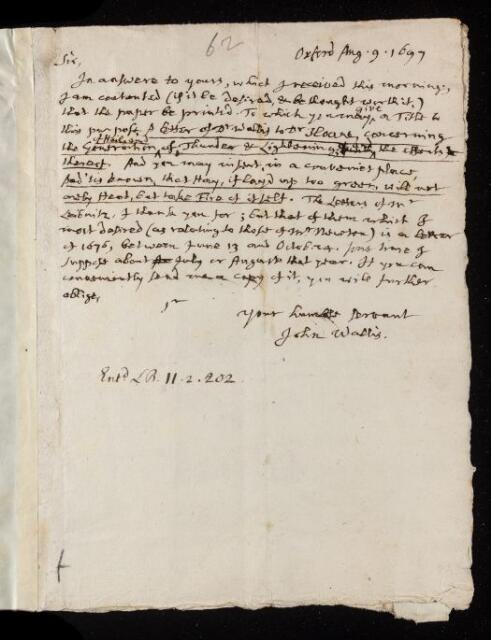 62
Oxford Aug. 9. 1697
Sir,
In answere to yours, which I received this morning;
I am contented (if it be desired, & be thought worth it,)
that the paper be printed. To which you may give a Title to
this purpose, A letter of Dr Wallis to Dr Sloane, concerning
the Generation of Hail, and of Thunder & Lightening, and the effects
thereof. And you may insert, in a convenient place,
And 'tis known that Hay, if layd up too green, will not
onely Heat, but take Fire of it self. The Letters of Mr
Leibnitz, I thank you for; but that of them which I
most desired (as relating to those of Mr Newton) is a Letter
of 1676, between June 13 and Octob. 24. some time I
suppose about July or August that year. If you can
conveniently send me a copy of it, you will further
oblige,
Sr
Your humble servant
John Wallis.
Entd LB. 11. 2. 202